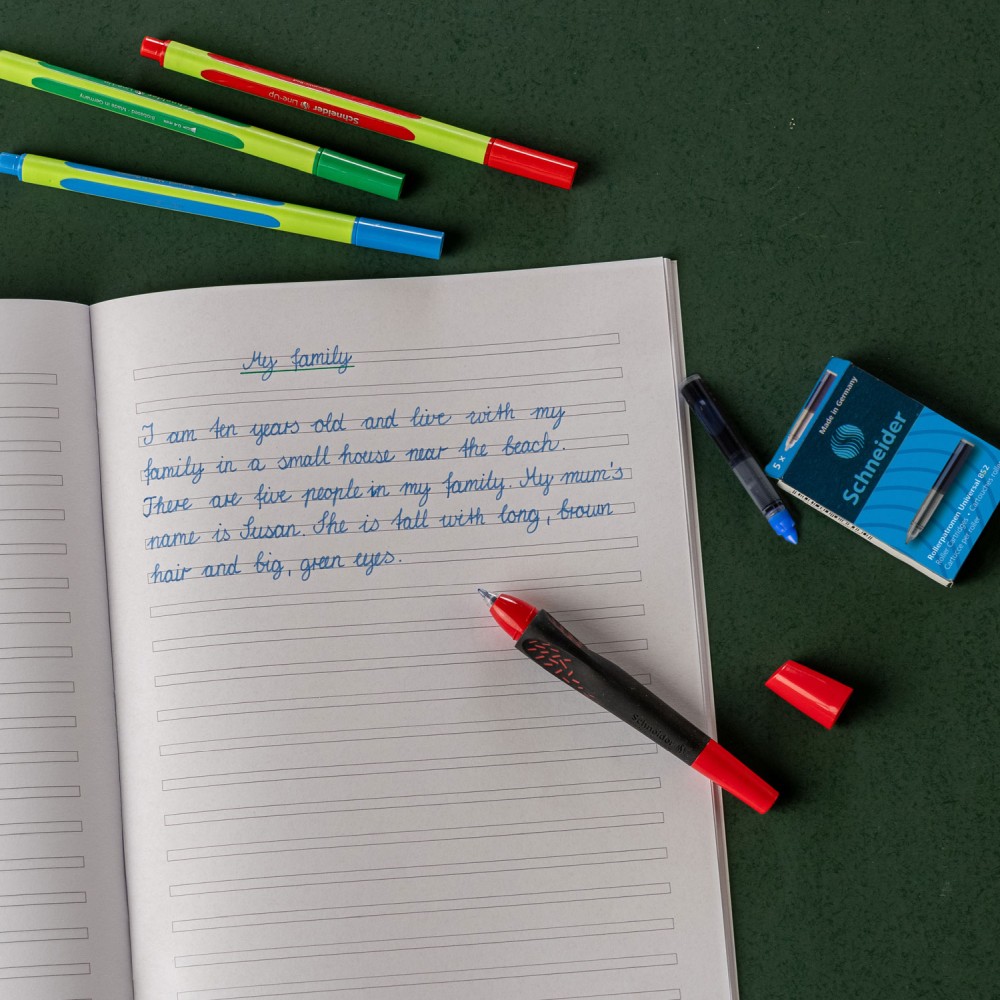 Schneider Line-Up
Made in Germany
My family
I am ten years old and live with my
family in a small house near the beach.
There are five people in my family. My mum's
name is Susan. She is tall with long, brown
hair and big, green eyes.
5 x
Made in Germany
Schneider
Rollerpatronen Universal 852
Roller Cartridges • Cartouches roller
Cartucce per roller
Schneider